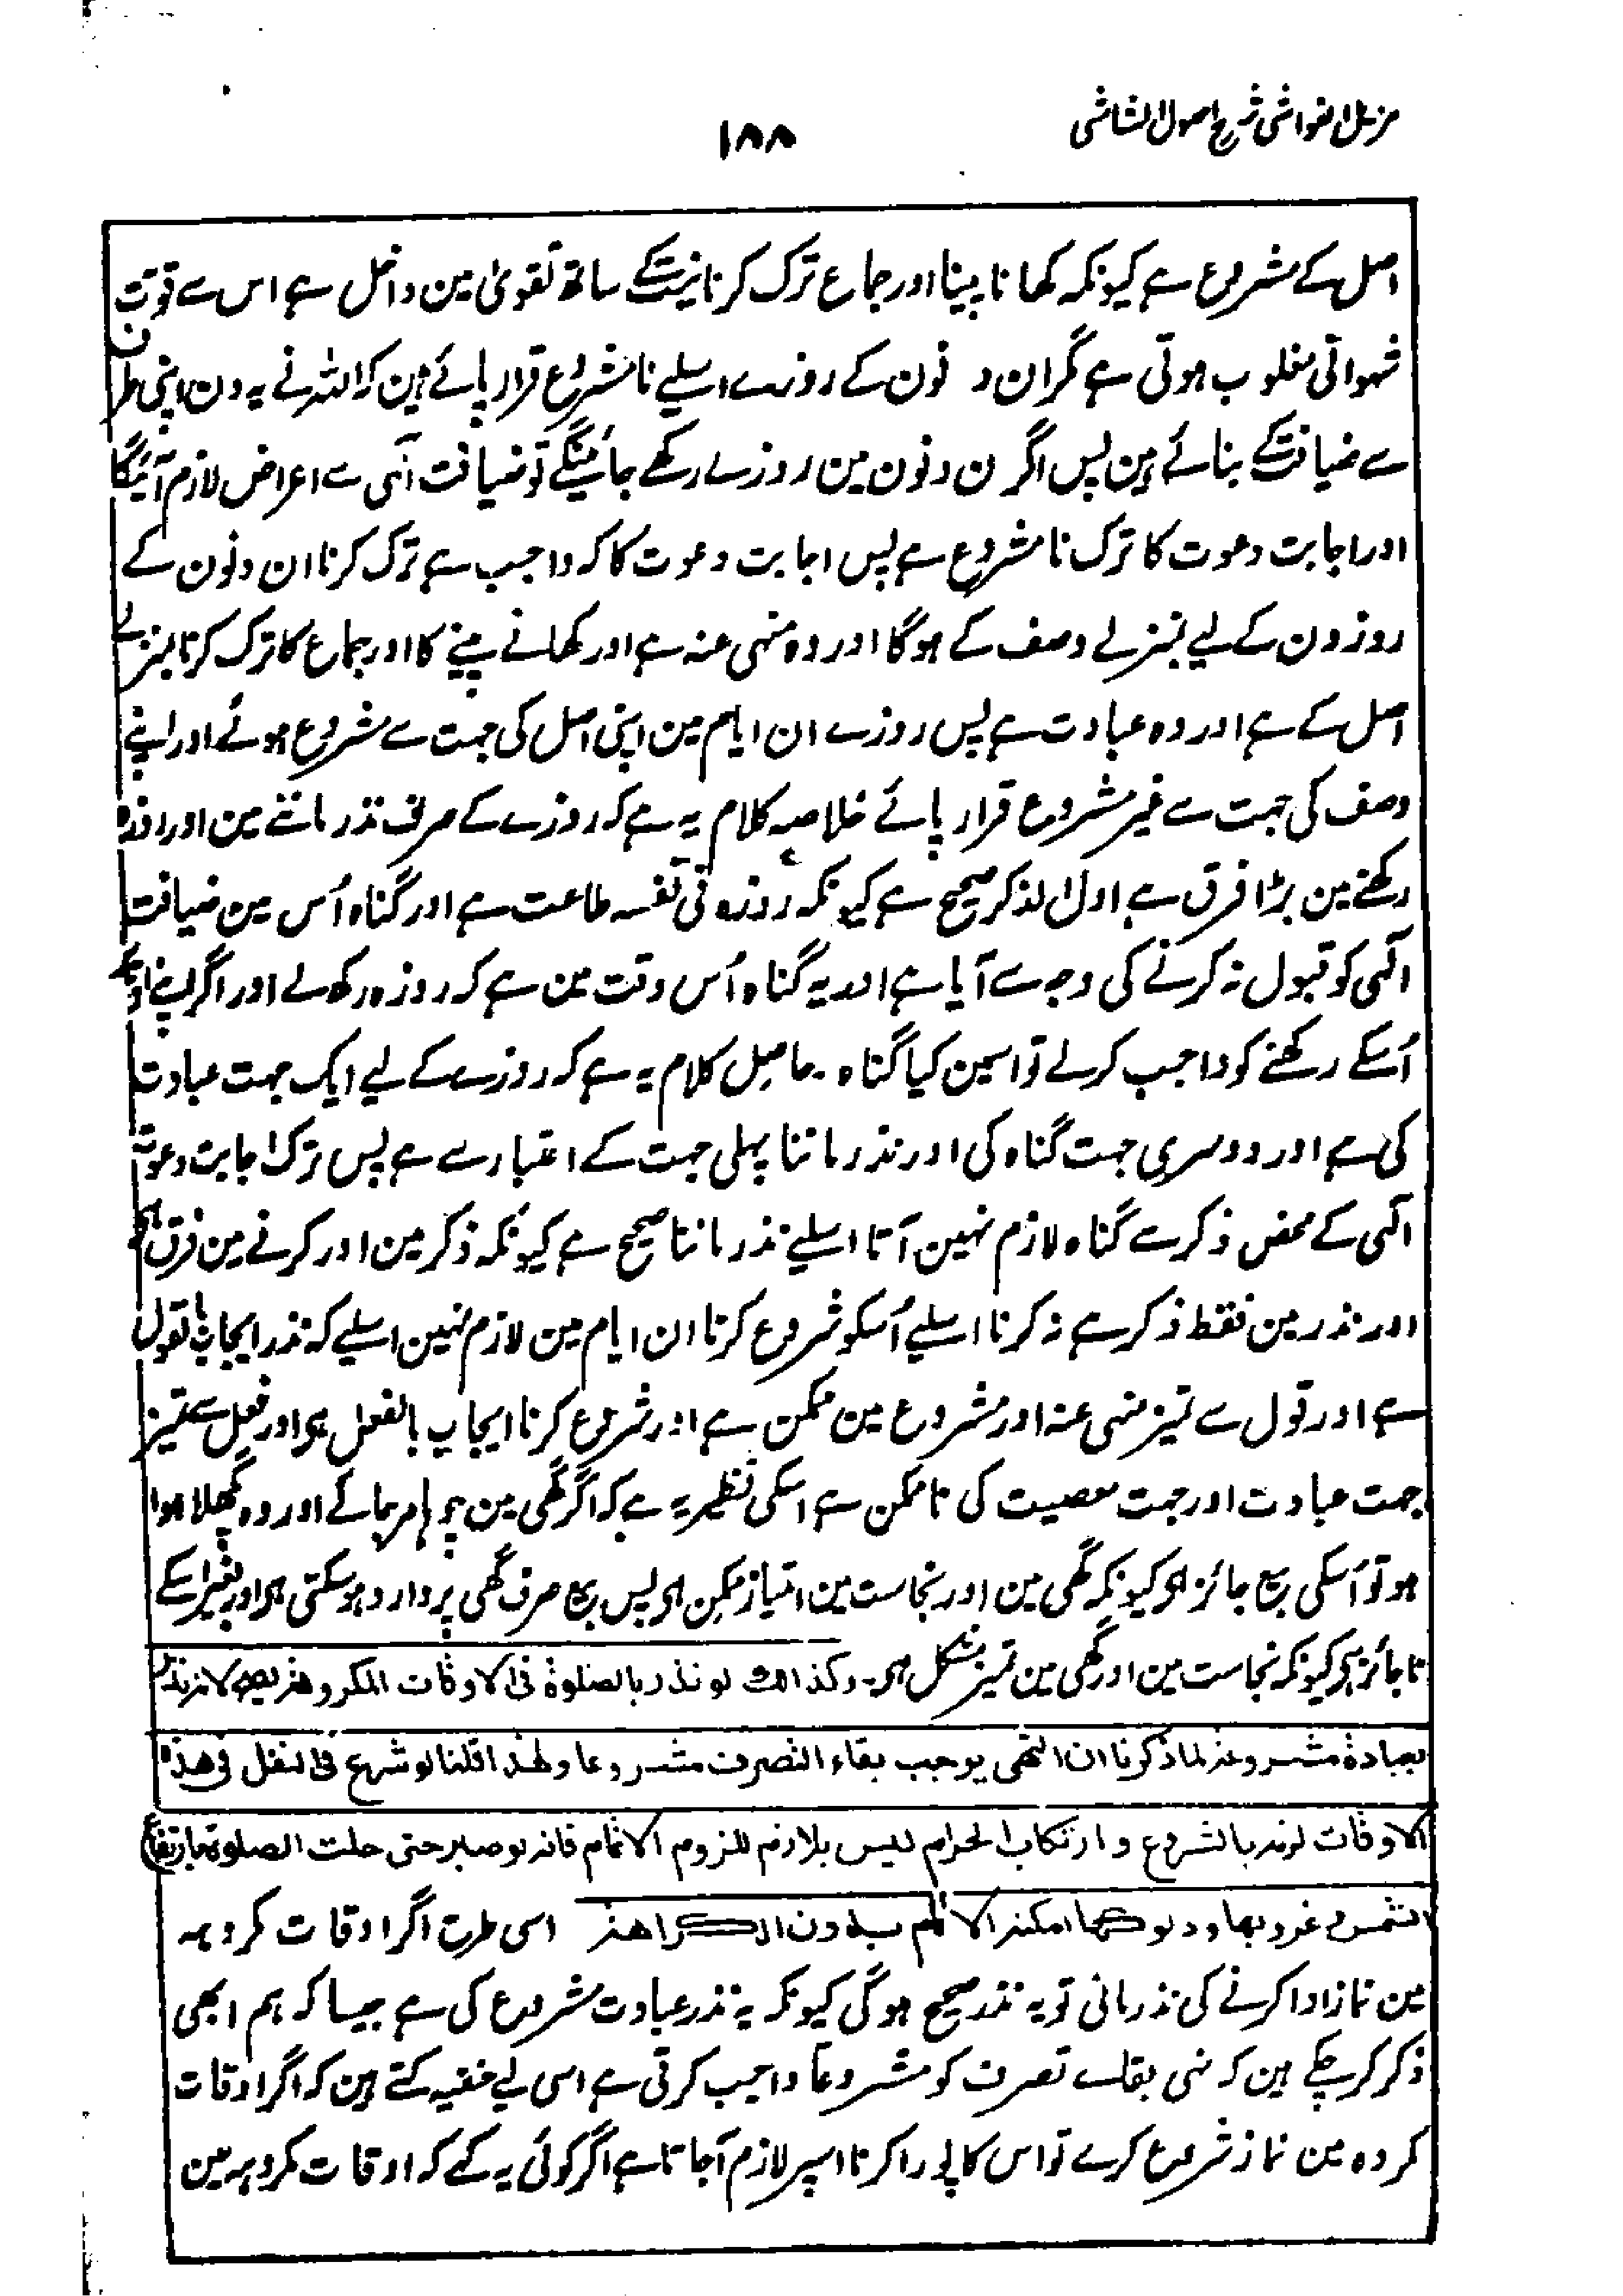 مزیل الغواشی شرح اصول الشاشی
۱۸۸
اصل کے مشروع ہے کیونکہ کھانا پینا اور جماع ترک کرنا نیت کے ساتھ تقویٰ مین داخل ہے اس سے قوت
شہوانی مغلوب ہوتی ہے مگر ان دنون کے روزے اسلیے نامشروع قرار پائے ہین کہ اللہ نے یہ دن اپنی طرف
سے ضیافت کے بنائے ہین پس اگر ان دنون مین روزے رکھے جائینگے تو ضیافت آلہی سے اعراض لازم آئیگا
اور اجابت دعوت کا ترک نامشروع ہے پس اجابت دعوت کا کہ واجب ہے ترک کرنا ان دنون کے
روزون کے لیے بمنزلے وصف کے ہوگا اور وہ منہی عنہ ہے اور کھانے پینے کا اور جماع کا ترک کرنا بمنزلے
اصل کے ہے اور وہ عبادت ہے پس روزے ان ایام مین اپنی اصل کی جہت سے مشروع ہوئے اور اپنے
وصف کی جہت سے غیر مشروع قرار پائے خلاصہ کلام یہ ہے کہ روزے کے صرف نذر ماننے مین اور روزہ
رکھنے مین بڑا فرق ہے اول الذکر صحیح ہے کیونکہ روزہ فی نفسہ طاعت ہے اور گناہ اُس مین ضیافت
آلہی کو قبول نہ کرنے کی وجہ سے آیا ہے اور یہ گناہ اُس وقت مین ہے کہ روزہ رکھ لے اور اگر اپنے اوپر
اُسکے رکھنے کو واجب کرلے تو اسمین کیا گناہ ۔ حاصل کلام یہ ہے کہ روزے کے لیے ایک جہت عبادت
کی ہے اور دوسری جہت گناہ کی اور نذر ماننا پہلی جہت کے اعتبار سے ہے پس ترک اجابت دعوت
آلہی کے محض ذکر سے گناہ لازم نہین آتا اسلیے نذر ماننا صحیح ہے کیونکہ ذکر مین اور کرنے مین فرق ہی
اور نذر مین فقط ذکر ہے نہ کرنا اسلیے اُسکو شروع کرنا ان ایام مین لازم نہین اسلیے کہ نذر ایجاب بالقول
ہے اور قول سے تمیز منہی عنہ اور مشروع مین ممکن ہے اور شروع کرنا ایجاب بالفعل ہی اور فعل سے تمیز
جہت عبادت اور جہت معصیت کی ناممکن ہے اسکی نظیر یہ ہے کہ اگر گھی مین چوہا مرجائے اور وہ پگھلا ہوا
ہو تو اُسکی بیع جائز ہی کیونکہ گھی مین اور نجاست مین امتیاز ممکن ہی پس بیع صرف گھی پر وارد ہوسکتی ہی اور بغیر اسکے
ناجائز ہی کیونکہ نجاست مین اور گھی مین تمیز مشکل ہی۔ وکذالک لو نذر بالصلوة فی الاوقات المکروهة یصح لانه نذر
بعبادة مشروعة لما ذکرنا ان النهی یوجب بقاء التصرف مشروعا ولهذا قلنا لو شرع فی النفل فی هذه
الاوقات لزمه بالشروع وارتکاب الحرام لیس بلازم للزوم الاتمام فانه لو صبر حتی حلت الصلوة بارتفاع
الشمس و غروبها ودلوکها امکنه الاتمام بدون الکراهة اسی طرح اگر اوقات مکروہہ
مین نماز ادا کرنے کی نذر مانی تو یہ نذر صحیح ہوگی کیونکہ یہ نذر عبادت مشروع کی ہے جیسا کہ ہم ابھی
ذکر کرچکے ہین کہ نہی بقاے تصرف کو مشروعاً واجب کرتی ہے اسی لیے حنفیہ کہتے ہین کہ اگر اوقات
مکروہ مین نماز شروع کرے تو اس کا پورا کرنا اسپر لازم آجاتا ہے اگر کوئی یہ کہے کہ اوقات مکروہہ مین